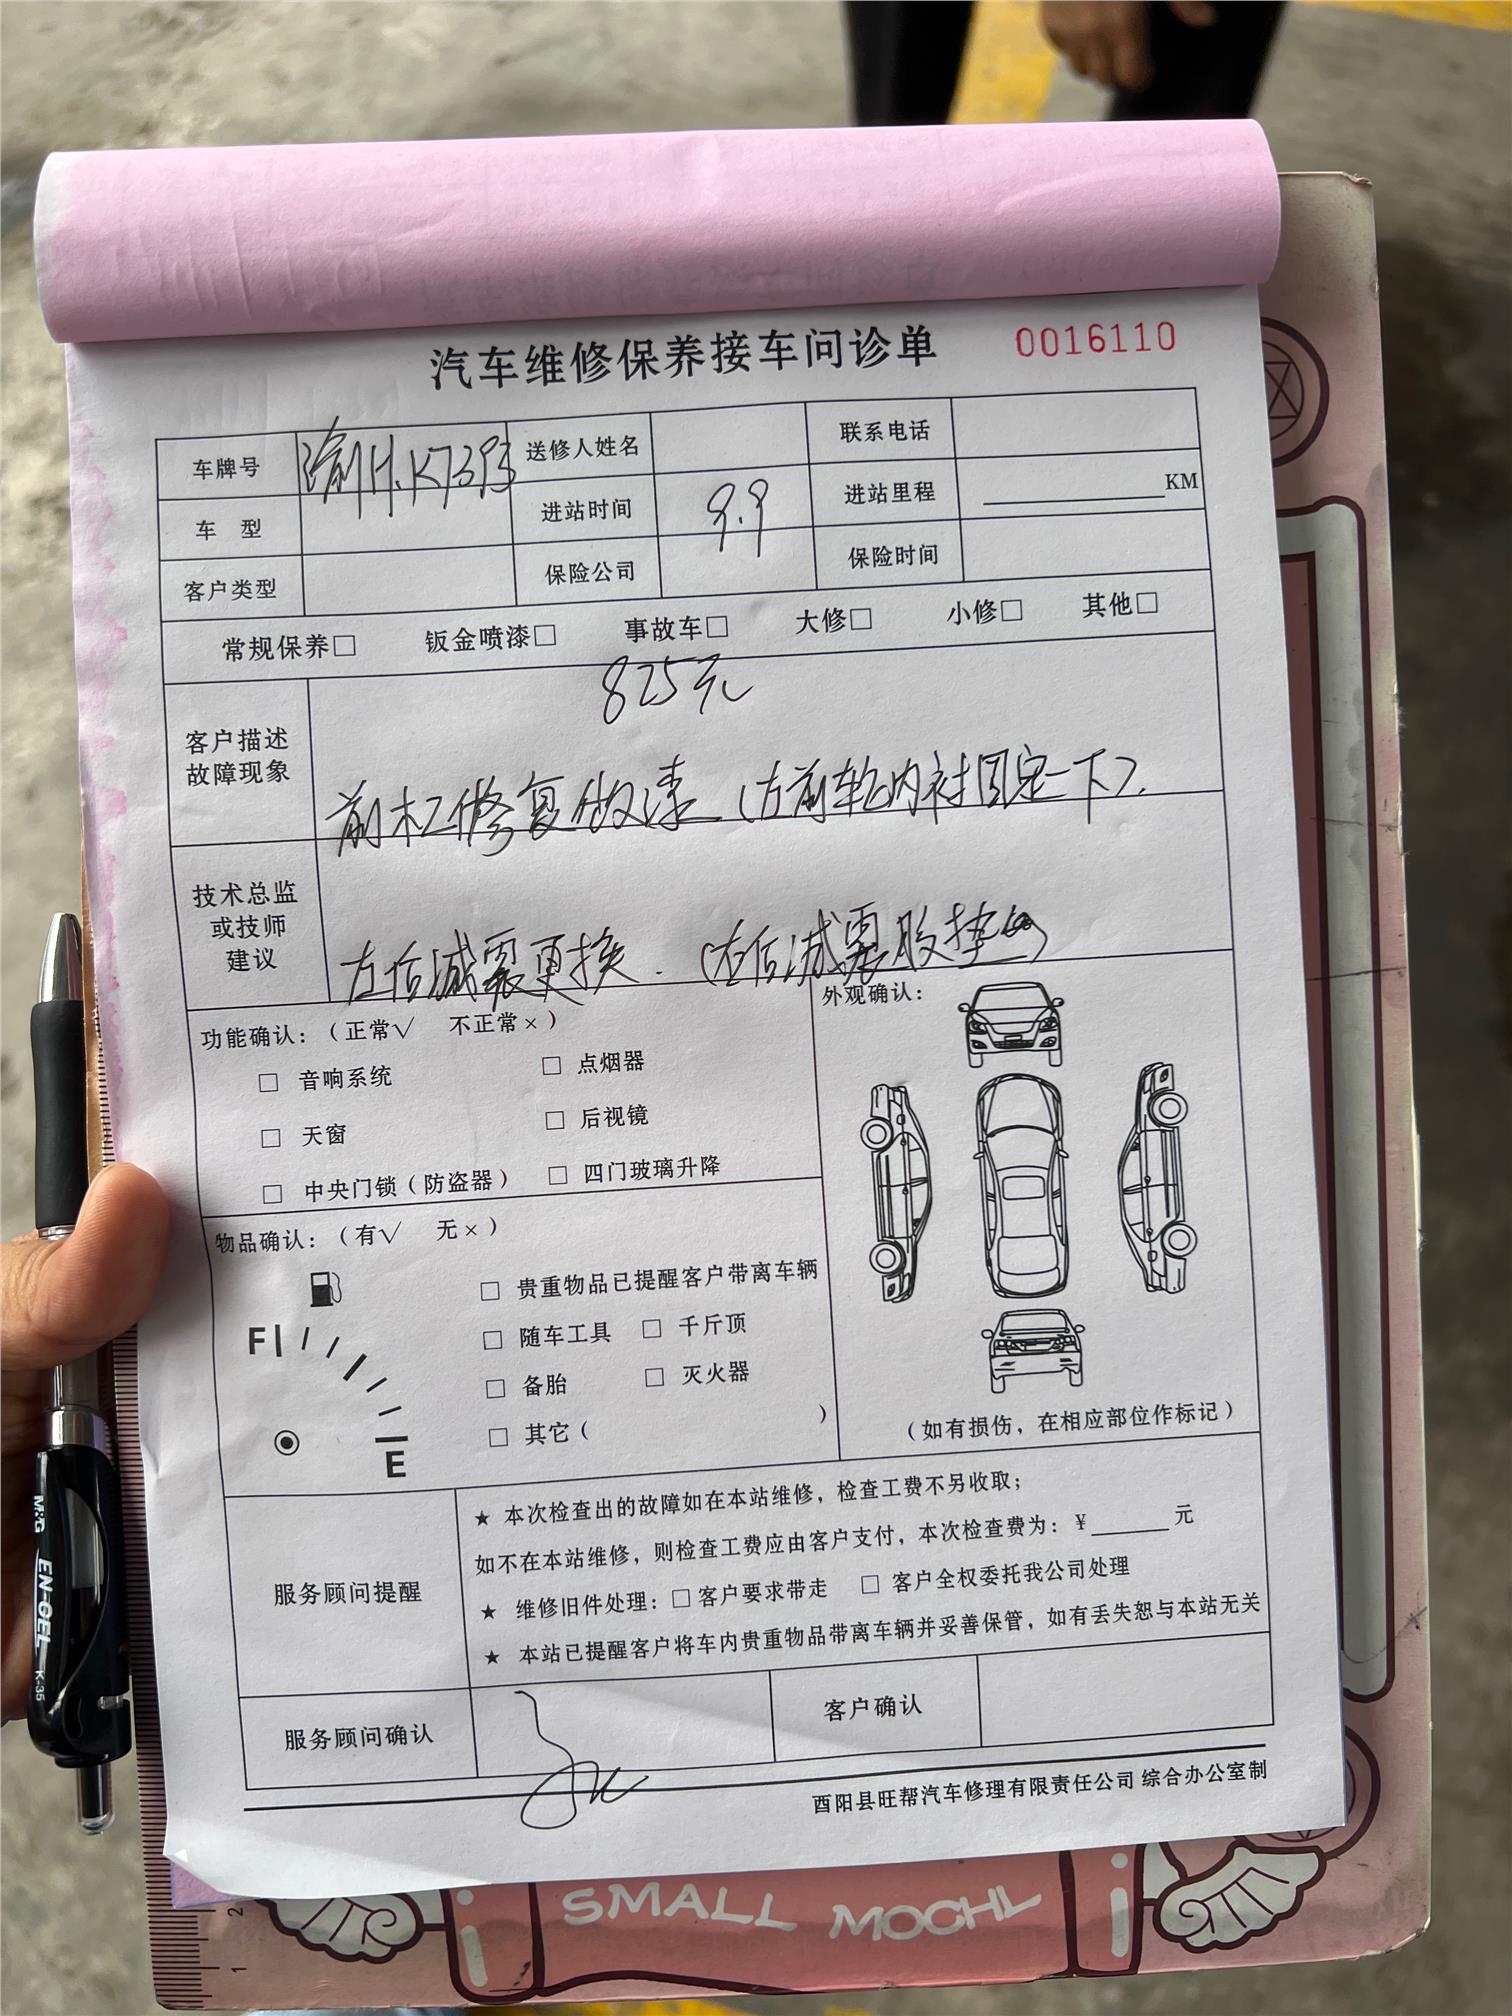 汽车维修保养接车问诊单 0016110
车牌号 渝H.K7393 送修人姓名 联系电话
车 型 进站时间 9.9 进站里程 KM
客户类型 保险公司 保险时间
常规保养□ 钣金喷漆□ 事故车□ 大修□ 小修□ 其他□
825元
客户描述
故障现象
前杠修复做漆(左前轮内衬固定一下).
技术总监
或技师
建议
左后减震更换. (左后减震胶垫)
功能确认:(正常√ 不正常×)
□ 音响系统 □ 点烟器
□ 天窗 □ 后视镜
□ 中央门锁(防盗器) □ 四门玻璃升降
外观确认:
(如有损伤,在相应部位作标记)
物品确认:(有√ 无×)
□ 贵重物品已提醒客户带离车辆
□ 随车工具 □ 千斤顶
□ 备胎 □ 灭火器
□ 其它( )
F
E
服务顾问提醒
★ 本次检查出的故障如在本站维修,检查工费不另收取;
如不在本站维修,则检查工费应由客户支付,本次检查费为:¥______元
★ 维修旧件处理:□客户要求带走 □ 客户全权委托我公司处理
★ 本站已提醒客户将车内贵重物品带离车辆并妥善保管,如有丢失恕与本站无关
服务顾问确认 客户确认
酉阳县旺帮汽车修理有限责任公司 综合办公室制
M&G EN-GEL K-35
SMALL MOCHL
2
1